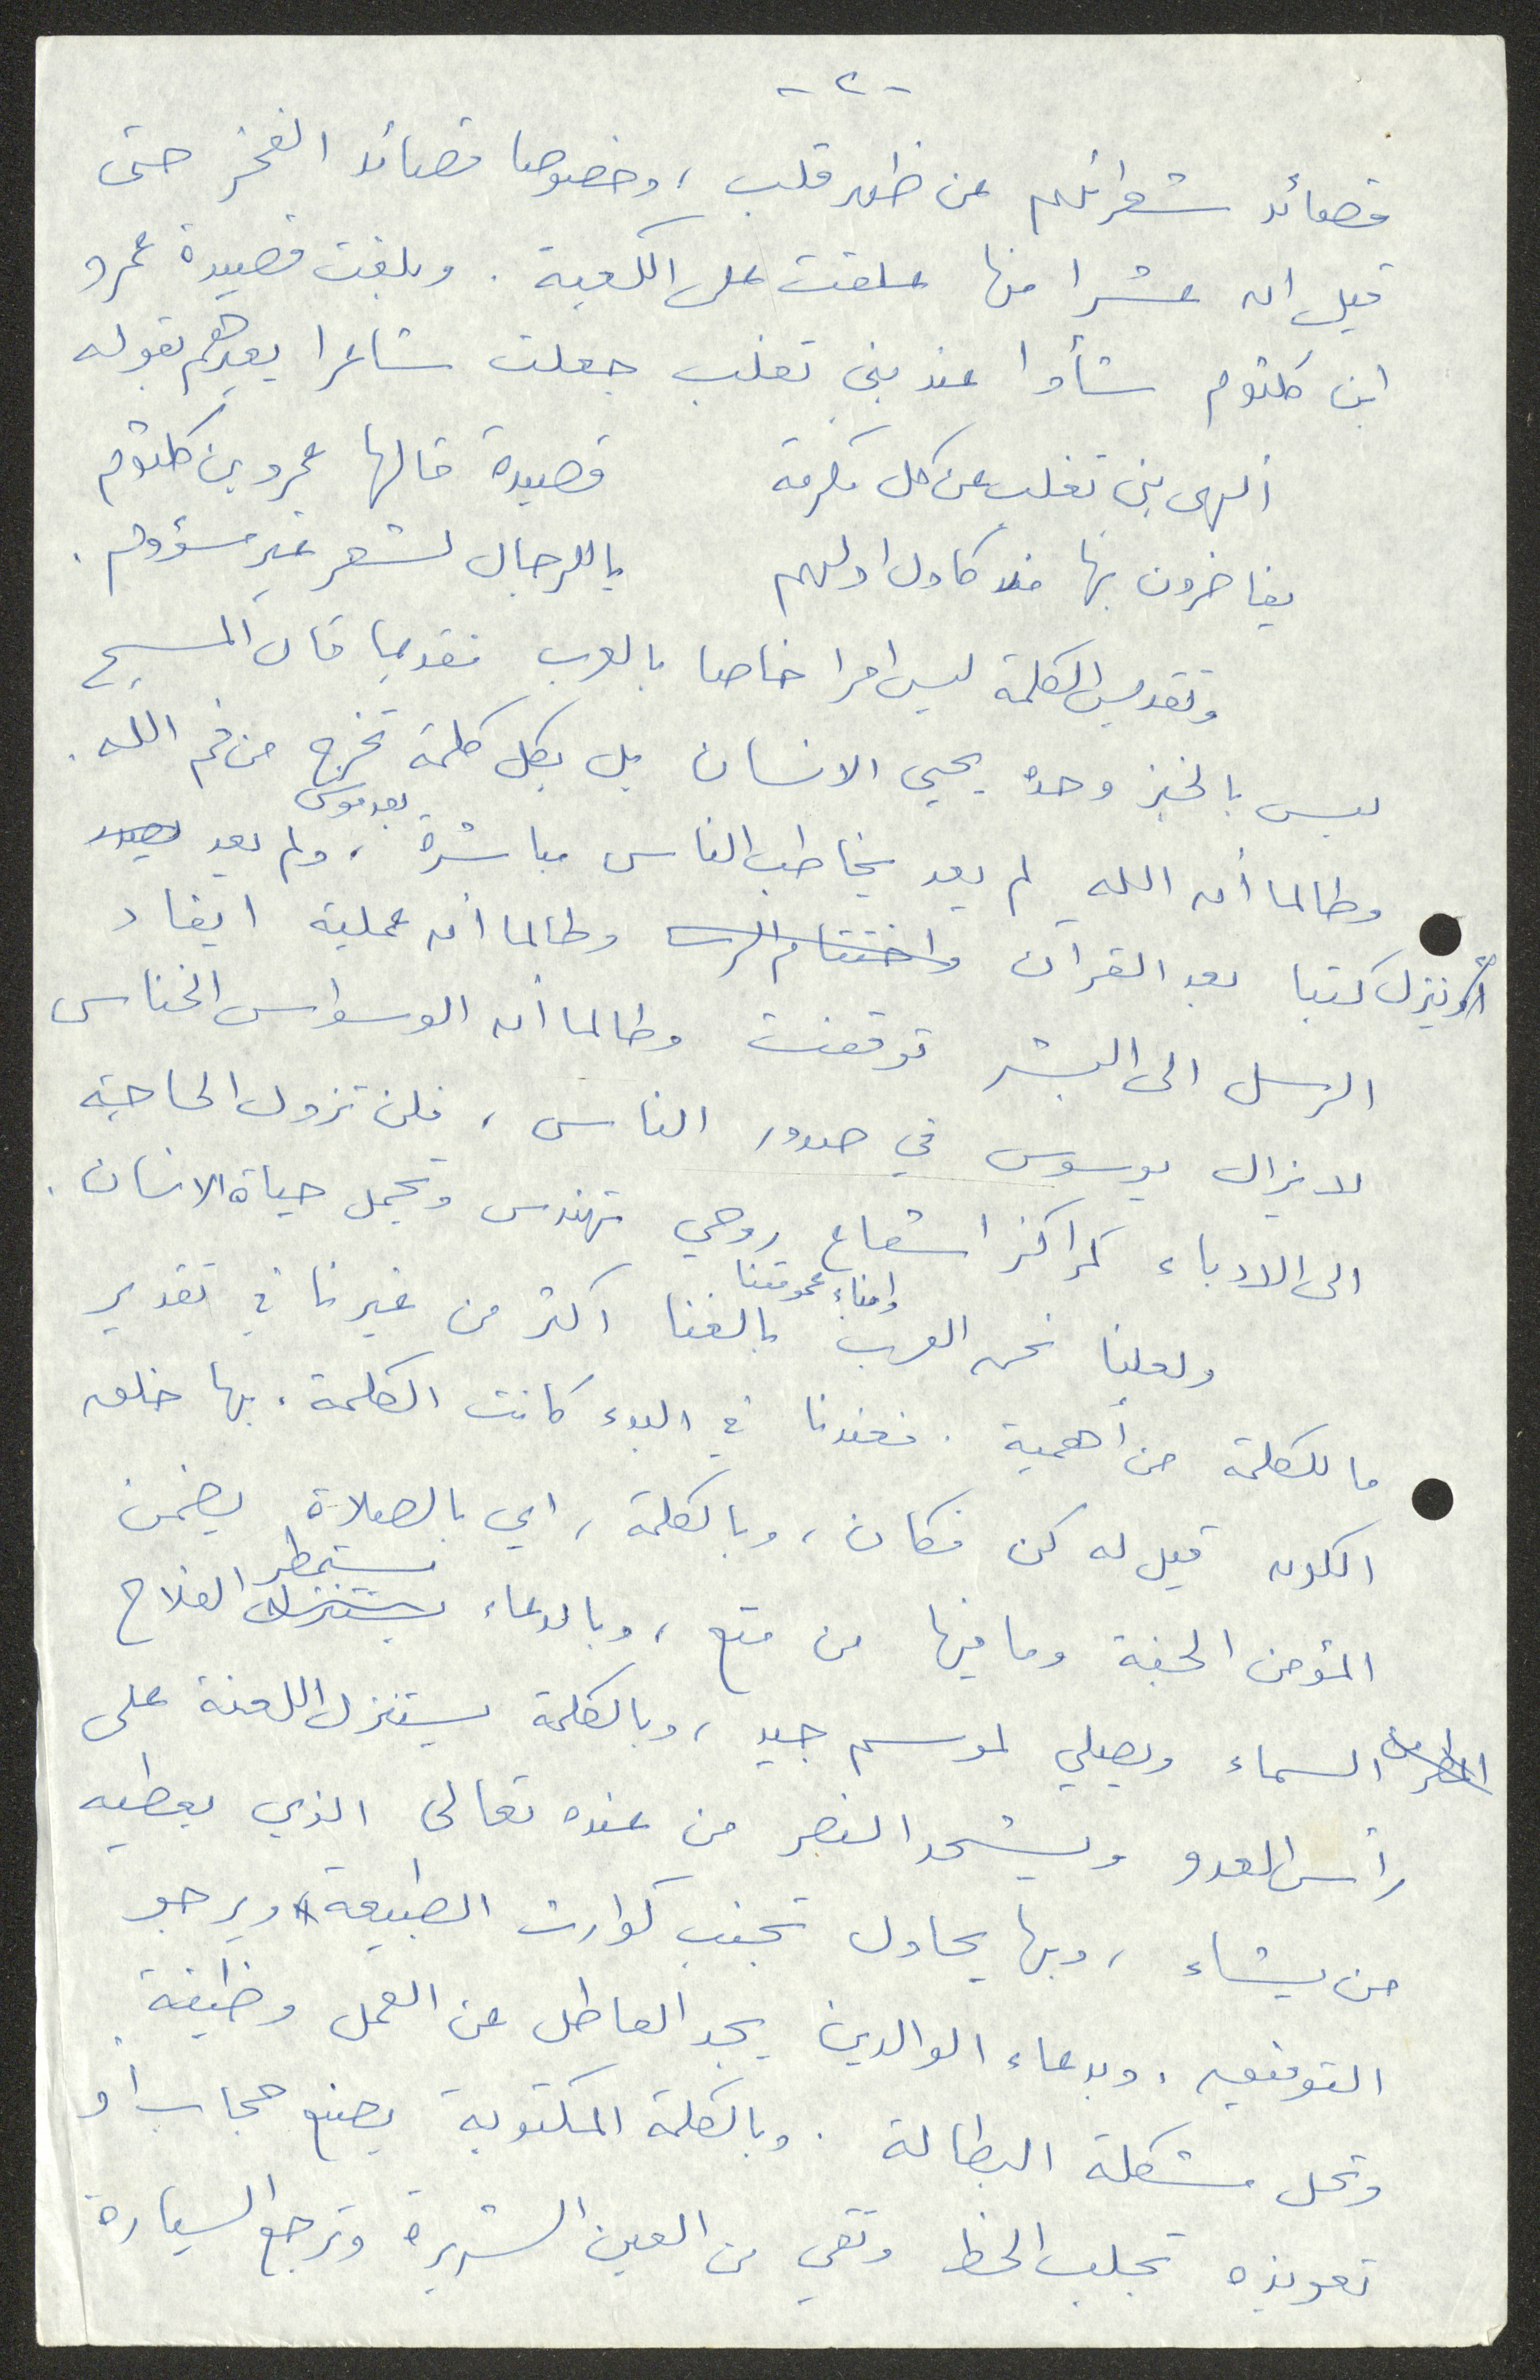 -٢-
قصائد شعرائهم عن ظهر قلب ، وخصوصا قصائد الفخر حتى
قيل ان عشرا منها علقت على الكعبة . وبلغت قصيدة عمرو
ابن كلثوم شأوا عند بني تغلب جعلت شاعرا يعيرهم بقوله
ألهى بني تغلب عن كل مكرمة قصيدة قالها عمرو بن كلثوم
يفاخرون بها مذ كان اولهم يا للرجال لشعر غير مسؤوم .
وتقديس الكلمة ليس امرا خاصا بالعرب فقديما قال المسيح
ليس بالخبز وحده يحيى الانسان بل بكل كلمة تخرج من فم الله .
وطالما أن الله لم يعد يخاطب الناس مباشرة بعد موسى ، ولم يعد
ينزل كتبا بعد القرآن واختتام الرس وطالما أن عملية ايفاد
الرسل الى البشر توقفت وطالما أن الوسواس الخناس
لا يزال يوسوس في صدور الناس ، فلن تزول الحاجة
الى الادباء كمراكز اشعاع روحي تهندس وتجمل حياة الانسان .
ولعلنا نحن العرب وابناء عمومتنا بالغنا اكثر من غيرنا في تقدير
ما للكلمة من أهمية . فعندنا في البدء كانت الكلمة . بها خلق
الكون قيل له كن فكان ، وبالكلمة ، اي بالصلاة يضمن
المؤمن الجنة وما فيها من متع ، وبالدعاء يستنزل يستمطر الفلاح
المطر من السماء ويصلي لموسم جيد ، وبالكلمة يستنزل اللعنة على
رأس العدو ويشحد النصر من عنده تعالى الذي يعطيه
من يشاء ، وبها يحاول تجنب كوارث الطبيعة ويرجو
التوفيق . وبدعاء الوالدين يجد العاطل عن العمل وظيفة
وتحل مشكلة البطالة . وبالكلمة المكتوبة يصنع حجاب أو
تعويذه تجلب الحظ وتقي من العين الشريرة وترجع السيارة